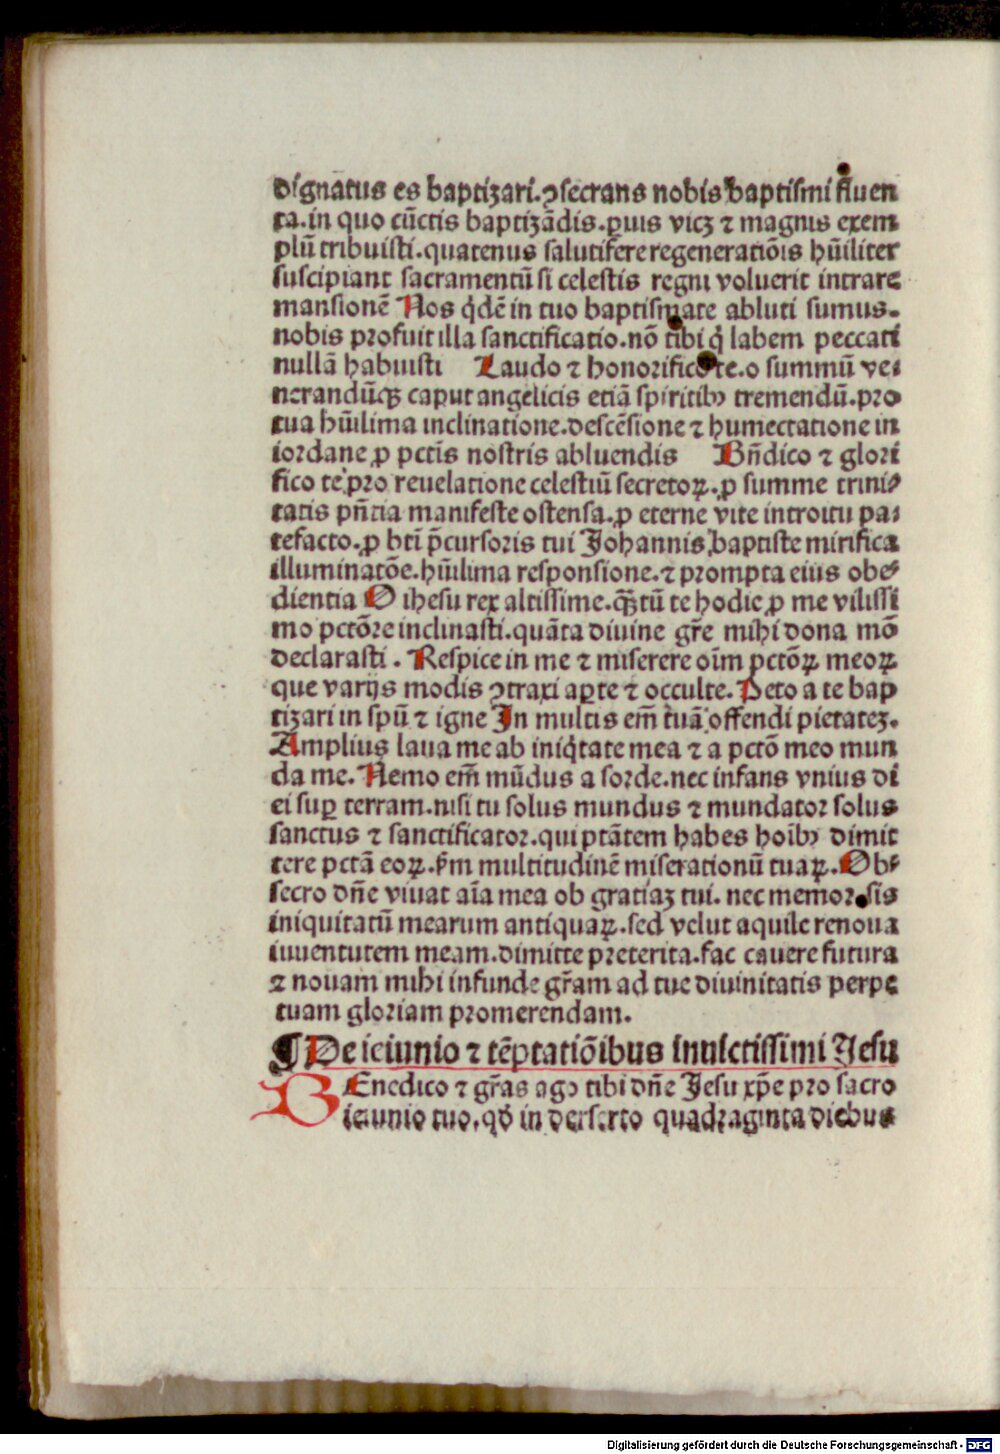 dignatus es baptizari.ꝯsecrans nobis baptismi fluen
ta.in quo cūctis baptizādis.ꝑuis vicꝫ ⁊ magnis exem
plū tribuisti.quatenus salutifere regeneratiōis hūiliter
suscipiant sacramentū si celestis regni voluerit intrare
mansionē Nos q̇dē in tuo baptismate abluti sumus.
nobis profuit illa sanctificatio.nō tibi q̇ labem peccati
nullā habuisti Laudo ⁊ honorifico te.o summū ve⸗
nerandūqꝫ caput angelicis etiā spiritibꝰ tremendū.pro
tua hūilima inclinatione.descēsione ⁊ humectatione in
iordane ꝓ pctīs nostris abluendis Bn̄dico ⁊ glori
fico te pro reuelatione celestiū secretoꝝ.ꝓ summe trini⸗
tatis pn̄tia manifeste ostensa.ꝓ eterne vite introitu pa⸗
tefacto.ꝓ btī p̄cursoris tui Johannis baptiste mirifica
illuminatōe.hūilima responsione.⁊ prompta eius obe⸗
dientia O ihesu rex altissime.qꝫtū te hodie ꝓ me vilissi
mo pctōre inclinasti.quāta diuine gr̄e mihi dona mō
declarasti . Respice in me ⁊ miserere oīm pctōꝝ meoꝝ
que varijs modis ꝯtraxi aꝑte ⁊ occulte.Peto a te bap
tizari in spū ⁊ igne In multis em̄ tuā offendi pietateꝫ.
Amplius laua me ab iniq̇tate mea ⁊ a pctō meo mun
da me. Nemo em̄ mūdus a sorde.nec infans vnius di
ei suꝑ terram.nisi tu solus mundus ⁊ mundator solus
sanctus ⁊ sanctificator.qui ptātem habes hoībꝰ dimit
tere pctā eoꝝ.ẜm multitudinē miserationū tuaꝝ.Ob⸗
secro dn̄e viuat aīa mea ob gratiaꝫ tui. nec memor sis
iniquitatū mearum antiquaꝝ.sed velut aquile renoua
iuuentutem meam.dimitte preterita.fac cauere futura
⁊ nouam mihi infunde gr̄am ad tue diuinitatis perpe
tuam gloriam promerendam.
¶ De ieiunio ⁊ tēptatiōibus inuictissimi Jesu
BEnedico ⁊ gr̄as ago tibi dn̄e Jesu xp̄e pro sacro
ieiunio tuo.qđ in deserto quadraginta diebus
Digitalisierung gefördert durch die Deutsche Forschungsgemeinschaft - DFG